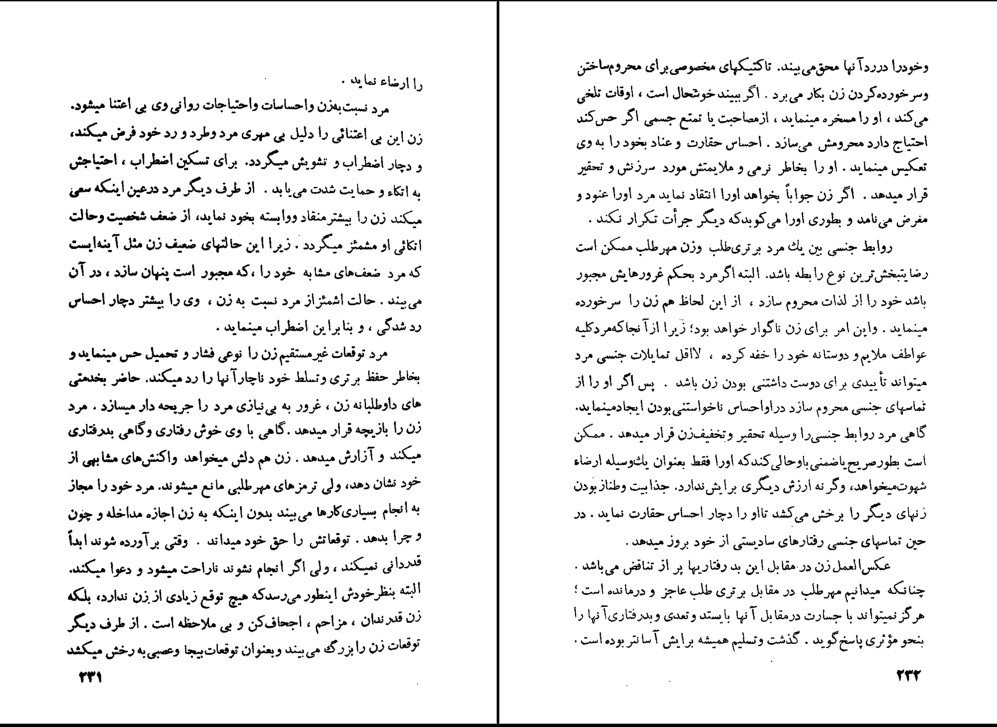 را ارضاء نماید .
مرد نسبت به‌زن واحساسات واحتیاجات روانی وی بی اعتنا میشود.
زن این بی اعتنائی را دلیل بی مهری مرد وطرد و رد خود فرض میکند،
و دچار اضطراب و تشویش میگردد. برای تسکین اضطراب ، احتیاجش
به اتکاء و حمایت شدت می‌یابد . از طرف دیگر مرد درعین اینکه سعی
میکند زن را بیشتر منقاد ووابسته بخود نماید، از ضعف شخصیت وحالت
اتکائی او مشمئز میگردد . زیرا این حالتهای ضعیف زن مثل آینه‌ایست
که مرد ضعف‌های مشابه خود را ،که مجبور است پنهان سازد ، در آن
می‌بیند . حالت اشمئزاز مرد نسبت به زن ، وی را بیشتر دچار احساس
رد شدگی ، و بنابراین اضطراب مینماید .
مرد توقعات غیرمستقیم زن را نوعی فشار و تحمیل حس مینماید و
بخاطر حفظ برتری وتسلط خود ناچار آنها را رد میکند. حاضر بخدمتی
های داوطلبانه زن ، غرور به بی‌نیازی مرد را جریحه دار میسازد . مرد
زن را بازیچه قرار میدهد .گاهی با وی خوش رفتاری وگاهی بدرفتاری
میکند و آزارش میدهد . زن هم دلش میخواهد واکنش‌های مشابهی از
خود نشان دهد، ولی ترمزهای مهرطلبی مانع میشوند. مرد خود را مجاز
به انجام بسیاری‌کارها می‌بیند بدون اینکه به زن اجازه مداخله و چون
و چرا بدهد . توقعاتش را حق خود میداند . وقتی برآورده شوند ابداً
قدردانی نمیکند ، ولی اگر انجام نشوند ناراحت میشود و دعوا میکند.
البته بنظرخودش اینطور می‌رسدکه هیچ توقع زیادی از زن ندارد، بلکه
زن قدرندان ، مزاحم ، اجحاف‌کن و بی ملاحظه است . از طرف دیگر
توقعات زن را بزرگ می‌بیند وبعنوان توقعات بیجا وعصبی به رخش میکشد
۲۳۱
وخودرا دررد آنها محق‌می‌بیند. تاکتیکهای مخصوصی برای محروم‌ساختن
وسرخورده‌کردن زن بکار می‌برد . اگر ببیند خوشحال است ، اوقات تلخی
می‌کند ، او را مسخره مینماید ، ازمصاحبت یا تمتع جسمی اگر حس‌کند
احتیاج دارد محرومش می‌سازد . احساس حقارت و عناد بخود را به وی
تعکیس مینماید . او را بخاطر نرمی و ملایمتش مورد سرزنش و تحقیر
قرار میدهد . اگر زن جواباً بخواهد اورا انتقاد نماید مرد اورا عنود و
مغرض می‌نامد و بطوری اورا می‌کوبدکه دیگر جرأت تکرار نکند .
روابط جنسی بین یك مرد برتری‌طلب وزن مهرطلب ممکن است
رضایتبخش‌ترین نوع رابطه باشد. البته اگرمرد بحکم غرورهایش مجبور
باشد خود را از لذات محروم سازد ، از این لحاظ هم زن را سرخورده
مینماید . واین امر برای زن ناگوار خواهد بود؛ زیرا ازآنجاکه‌مردکلیه
عواطف ملایم‌و دوستانه خود را خفه کرده ، لااقل تمایلات جنسی مرد
میتواند تأییدی برای دوست داشتنی بودن زن باشد . پس اگر او را از
تماسهای جنسی محروم سازد دراواحساس ناخواستنی‌بودن ایجادمینماید.
گاهی مرد روابط جنسی‌را وسیله تحقیر وتخفیف‌زن قرار میدهد . ممکن
است بطورصریح‌یاضمنی‌باوحالی‌کندکه اورا فقط بعنوان یك‌وسیله ارضاء
شهوت‌میخواهد، وگرنه ارزش دیگری برایش‌ندارد. جذابیت وطنازبودن
زنهای دیگر را برخش می‌کشد تااو را دچار احساس حقارت نماید . در
حین تماسهای جنسی رفتارهای سادیستی از خود بروز میدهد .
عکس‌العمل زن در مقابل این بدرفتاریها پر از تناقض می‌باشد .
چنانکه میدانیم مهرطلب در مقابل برتری طلب عاجز و درمانده است ؛
هرگز نمیتواند با جسارت درمقابل آنها بایستد و تعدی وبدرفتاری آنها را
بنحو مؤثری پاسخ‌گوید . گذشت وتسلیم همیشه برایش آسانتر بوده است .
۲۳۲